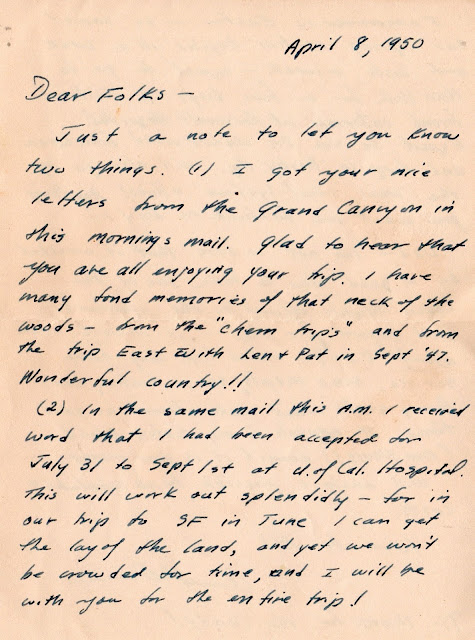 April 8, 1950
Dear Folks —
Just a note to let you know
two things. (1) I got your nice
letters from the Grand Canyon in
this mornings mail. Glad to hear that
you are all enjoying your trip. I have
many fond memories of that neck of the
woods — from the "chem trips" and from
the trip East with Len & Pat in Sept '47.
Wonderful country!!
(2) In the same mail this A.M. I received
word that I had been accepted for
July 31 to Sept 1st at U. of Cal. Hospital.
This will work out splendidly — for in
our trip to SF in June I can get
the lay of the land, and yet we won't
be crowded for time, and I will be
with you for the entire trip!